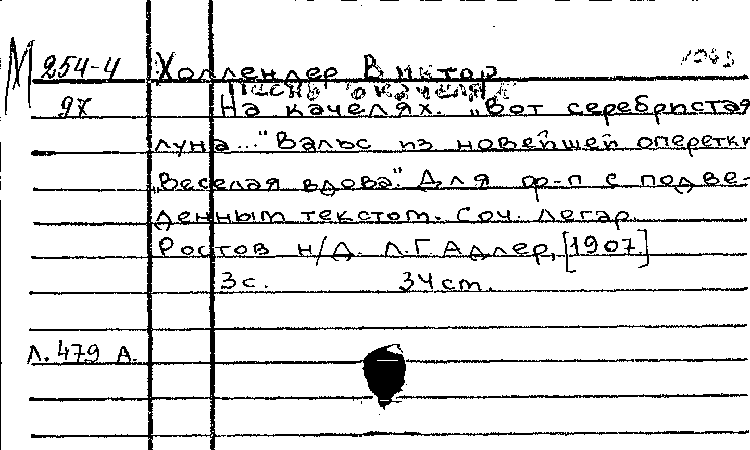 М 254-4 Холлендер Виктор
Песнь о качелях
97 На качелях. „Вот серебристая
луна..." Вальс из новейшей оперетки
„Веселая вдова". Для ф-п с подве-
денным текстом. Соч. Легар.
Ростов н/Д. Л.Г Адлер, [1907.]
3с. 34cm.
Л. 479 А.